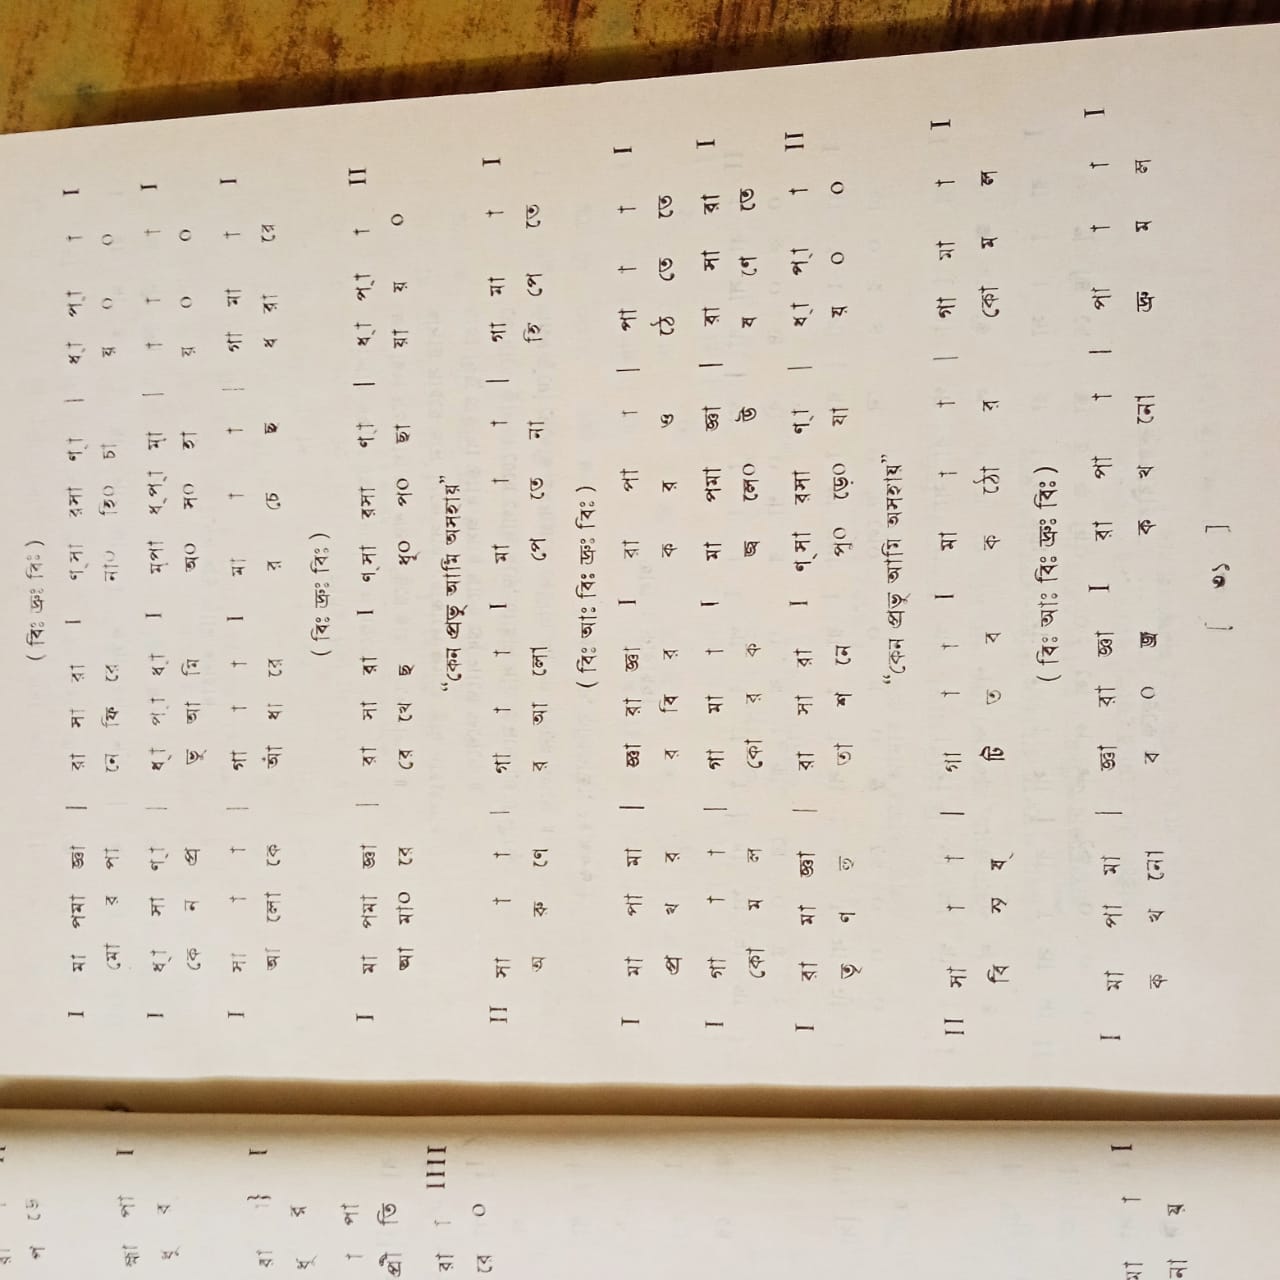 ( বিঃ দ্রুঃ বিঃ )
I মা পমা জ্ঞা | রা সা রা I ণ্‌সা রসা ণ্‌া | ধ্‌া প্‌া া I
মো র পা | নে ফি রে না০ হি০ চা য় ০ ০
I ধ্‌া সা ণ্‌া | ধ্‌া প্‌া ধ্‌া I ম্‌পা ধ্‌প্‌া ম্‌া | া া া I
কে ন প্র ভু আ মি অ০ স০ হা য় ০ ০
I সা া া | গা া া I মা া া | গা মা া I
আ লো কে আঁ ধা রে র চে ছ ধ রা রে
( বিঃ দ্রুঃ বিঃ )
I মা পমা জ্ঞা | রা সা রা I ণ্‌সা রসা ণ্‌া | ধ্‌া প্‌া া II
আ মা০ রে রে খে ছ ধূ০ প০ ছা য়া য় ০
“কেন প্রভু আমি অসহায়”
II সা া া | গা া া I মা া া | গা মা া I
অ রু ণে র আ লো পে তে না হি পে তে
( বিঃ আঃ বিঃ দ্রুঃ বিঃ )
I মা পা মা | জ্ঞা রা জ্ঞা I রা পা া | পা া া I
প্র খ র র বি র ক র ও ঠে তে তে
I গা া া | গা মা া I মা পমা জ্ঞা | রা সা রা I
কো ম ল কো র ক জ্ব লে০ উ ষ ণে তে
I রা মা জ্ঞা | রা সা রা I ণ্‌সা রসা ণ্‌া | ধ্‌া প্‌া া II
তৃ ণ ত তা শ নে পু০ ড়ে০ যা য় ০ ০
“কেন প্রভু আমি অসহায়”
II সা া া | গা া া I মা া া | গা মা া I
বি স্ম য্‌ টি ত ব ক ঠো র কো ম ল
( বিঃ আঃ বিঃ দ্রুঃ বিঃ )
I মা পা মা | জ্ঞা রা জ্ঞা I রা পা া | পা া া I
ক খ নো ব ০ জ্র ক খ নো দ্রু ম ল
[ ৩১ ]
প ডে
ক্ষা পা I
ধু র
রা া} I
ধু র
া পা
প্রী তি
রা া IIII
রে ০
মা া I
না য়